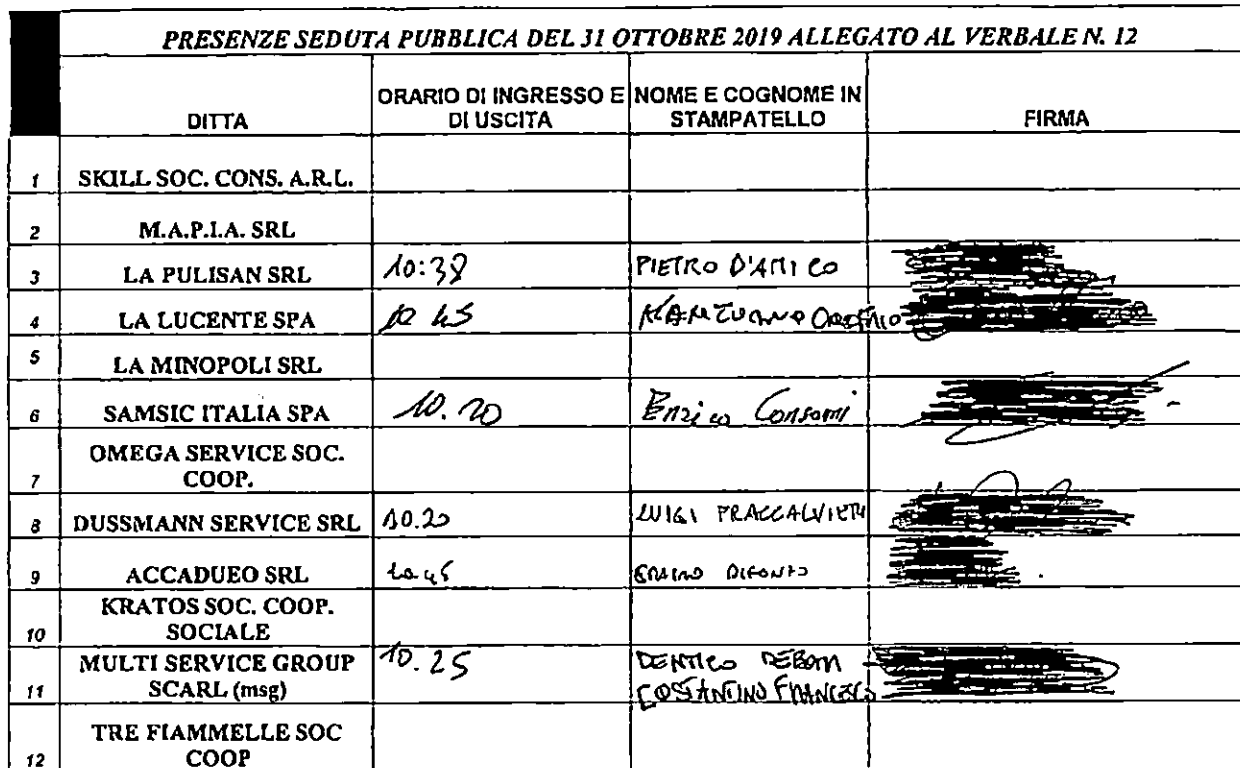 PRESENZE SEDUTA PUBBLICA DEL 31 OTTOBRE 2019 ALLEGATO AL VERBALE N. 12
DITTA ORARIO DI INGRESSO E DI USCITA NOME E COGNOME IN STAMPATELLO FIRMA
1 SKILL SOC. CONS. A.R.L.
2 M.A.P.I.A. SRL
3 LA PULISAN SRL 10:38 PIETRO D'AMICO
4 LA LUCENTE SPA 10 45
5 LA MINOPOLI SRL
6 SAMSIC ITALIA SPA 10.20 Enrico Consomi
7 OMEGA SERVICE SOC. COOP.
8 DUSSMANN SERVICE SRL 10.20 LUIGI FRACCALVIETI
9 ACCADUEO SRL 10.45
10 KRATOS SOC. COOP. SOCIALE
11 MULTI SERVICE GROUP SCARL (msg) 10.25 DENTICO COSTANTINO FRANCESCO
12 TRE FIAMMELLE SOC COOP